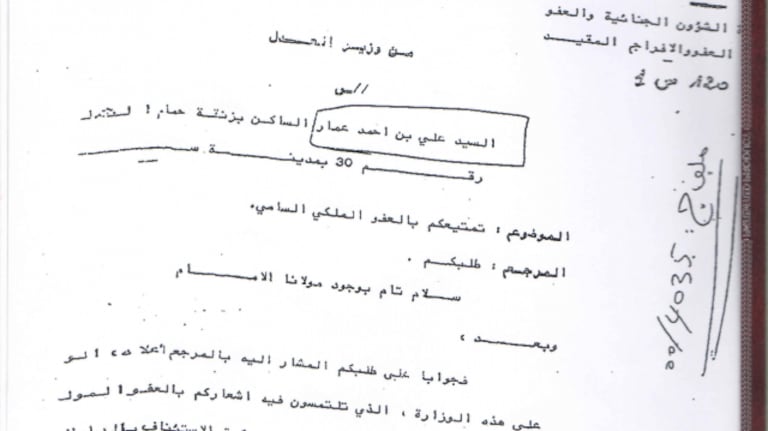 الشؤون الجنائية والعفو
العفو والافراج المقيد
120 ص 1
من وزير العدل
الى
السيد علي بن احمد عمار الساكن بزنقة حمام
رقم 30 بمدينة
الموضوع : تمتيعكم بالعفو الملكي السامي.
المرجع : طلبكم .
سلام تام بوجود مولانا الامام
وبعد ،
فجوابا على طلبكم المشار اليه بالمرجع أعلاه، الو
على هذه الوزارة ، الذي تلتمسون فيه اشعاركم بالعفو المول
الاستئناف
ملف ج : 4035/00